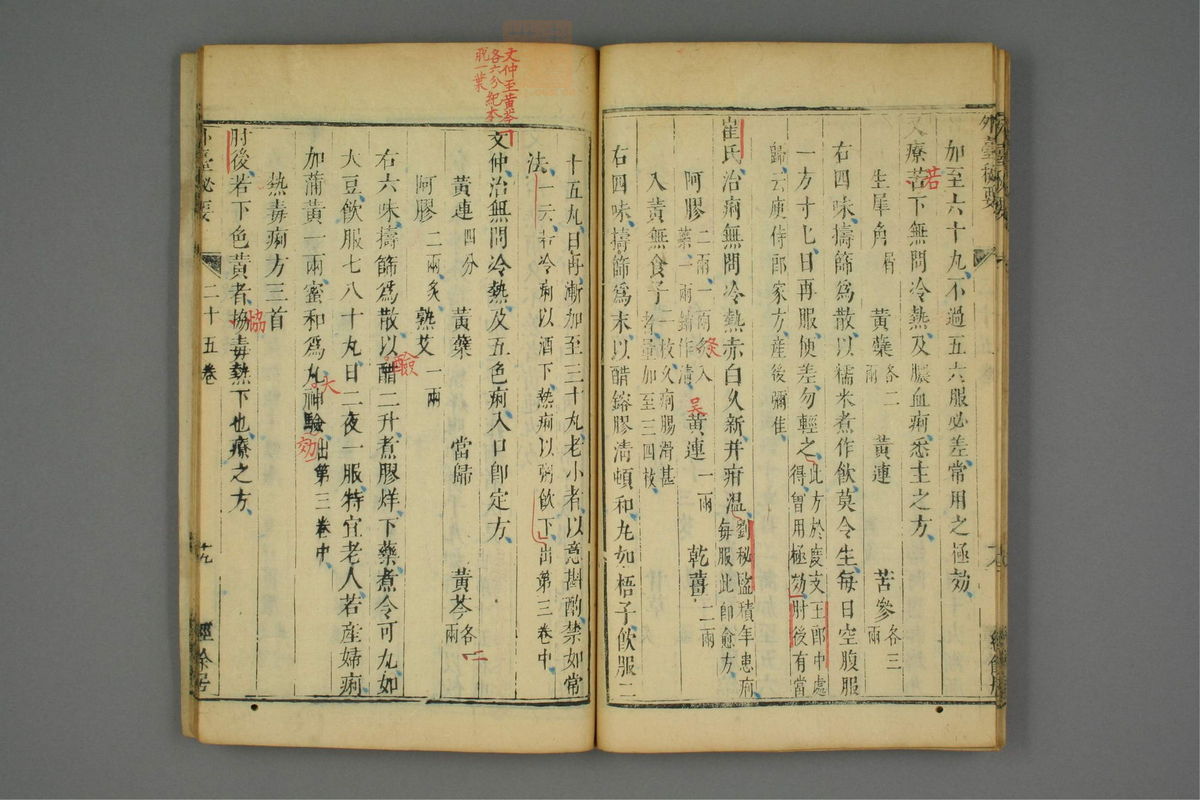 加至六十丸不過五六服必差常用之極効
又療苦下無問冷熱及膿血痢悉主之方
若
生犀角屑 黃蘗各二兩 黃連 苦參各三兩
右四味擣篩爲散以糯米煮作飲莫令生每日空腹服
一方寸匕日再服便差勿輕之此方於度支王郎中處
得曾用極効肘後有當
歸云庾侍郎家方產後彌佳
崔氏治痢無問冷熱赤白久新并疳溫劉秘監積年患痢
每服此卽愈方
阿膠二兩一兩炙入
藥一兩鎔作清 黃連一兩 乾薑二兩
炙
吴
入黃無食子二枚久痢腸滑甚
者量加至三四枚
右四味擣篩爲末以醋鎔膠清頓和丸如梧子飲服二
十五丸日再漸加至三十丸老小者以意斟酌禁如常
法一云若冷痢以酒下熱痢以粥飲下出第三卷中
文仲至黃芩
各六分紀本
脫一葉
文仲治無問冷熱及五色痢入口卽定方
黃連四分 黃蘗 當歸 黃芩各二兩
阿膠二兩炙 熟艾一兩
右六味擣篩爲散以醋二升煮膠烊下藥煮令可丸如
醶
大豆飲服七八十丸日二夜一服特宜老人若產婦痢
加蒲黃一兩蜜和爲丸神驗出第三卷中
大
効
熱毒痢方三首
肘後若下色黃者協毒熱下也療之方
協
外臺秘要 二十五卷 經餘居